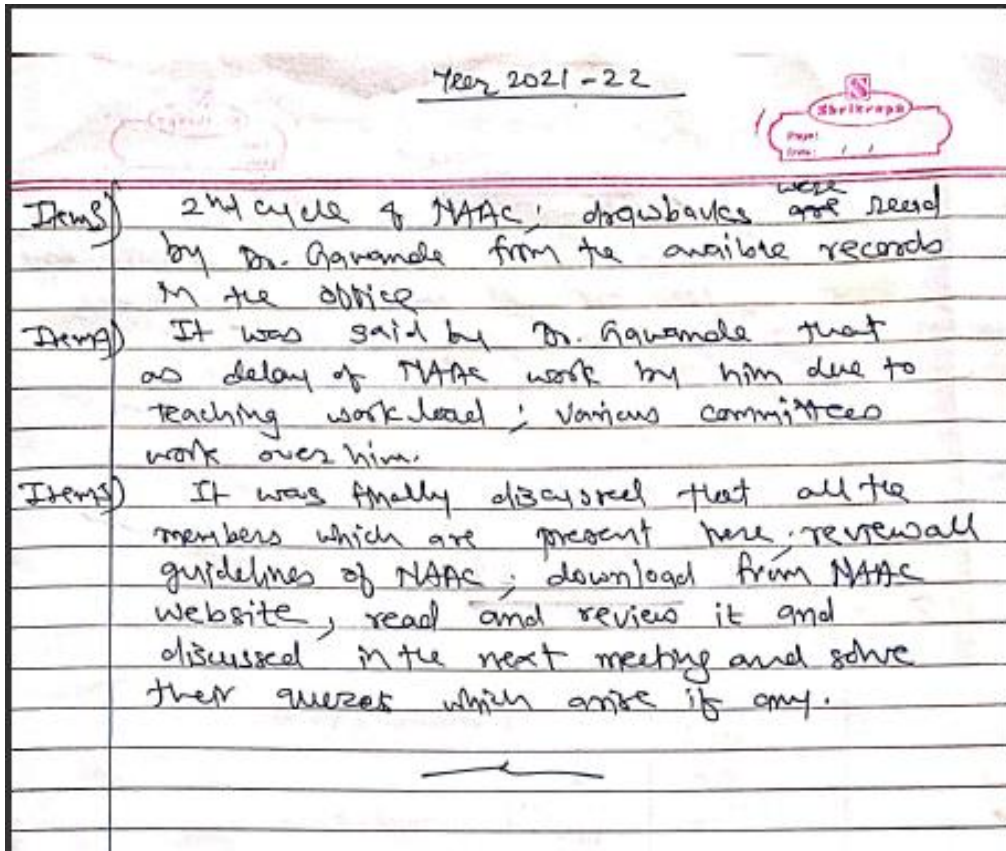 Year 2021-22
Shrikrupa
Page:
Date: / /
Item 3) 2nd cycle of NAAC; drawbacks were are read
by Dr. Gawande from the availble records
in the office
Item 4) It was said by Dr. Gawande that
as delay of NAAC work by him due to
teaching work load; various committees
work over him.
Item 5) It was finally discussed that all the
members which are present here; review all
guidelines of NAAC; download from NAAC
website, read and review it and
discussed in the next meeting and solve
their queres which arise if any.